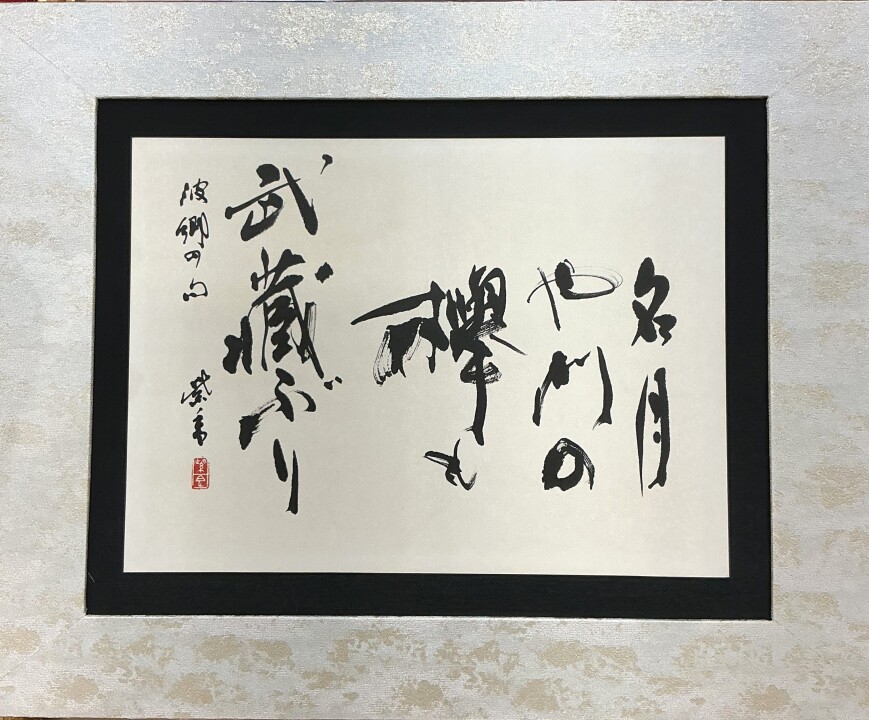 名月
や門の
欅も
武蔵ぶり
波郷の句